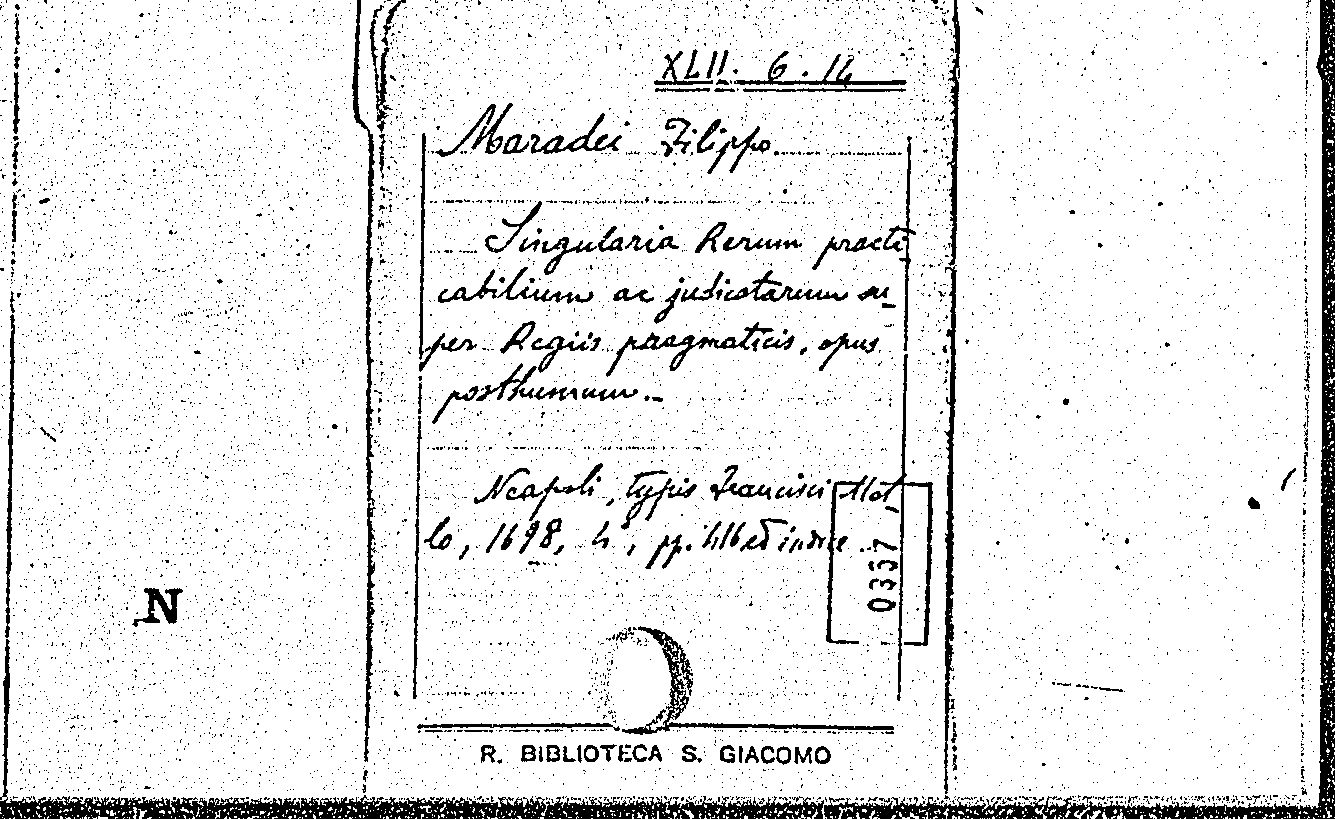 XLII. 6. 14
Maradei Filippo.
Singularia Rerum practi
cabilium ac judicatarum su_
per Regiis pragmaticis, opus
posthumum._
Neapoli, typis Francisci Mol
lo, 1698, 4°, pp. 416 ed indice
0337
N
R. BIBLIOTECA S. GIACOMO